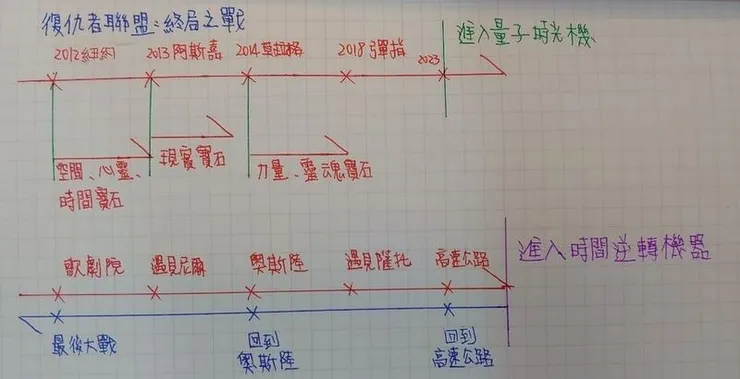 復仇者聯盟:終局之戰
2012紐約 2013阿斯嘉 2014莫拉格 2018彈指 2023
進入量子時光機
空間、心靈、
時間寶石
現實寶石
力量、靈魂寶石
歌劇院 遇見尼爾 奧斯陸 遇見薩托 高速公路
進入時間逆轉機器
最後大戰 回到
奧斯陸 回到
高速公路